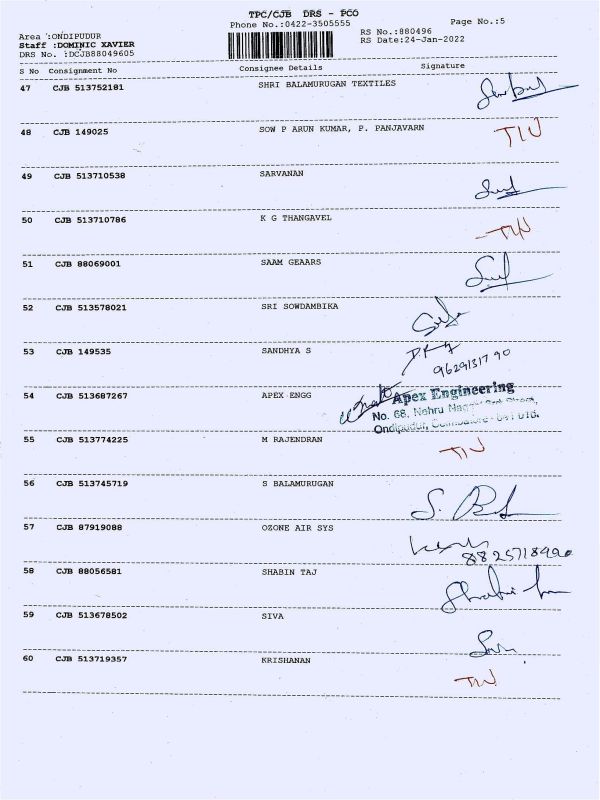 TPC/CJB DRS - PCO
Phone No.:0422-3505555
Page No.:5
Area :ONDIPUDUR
Staff :DOMINIC XAVIER
DRS No. :DCJB88049605
RS No.:880496
RS Date:24-Jan-2022
S No Consignment No Consignee Details Signature
47 CJB 513752181 SHRI BALAMURUGAN TEXTILES
48 CJB 149025 SOW P ARUN KUMAR, P. PANJAVARN
49 CJB 513710538 SARVANAN
50 CJB 513710786 K G THANGAVEL
51 CJB 88069001 SAAM GEAARS
52 CJB 513578021 SRI SOWDAMBIKA
53 CJB 149535 SANDHYA S
9629131790
54 CJB 513687267 APEX ENGG Apex Engineering
No. 68, Nehru Nagar Street,
Ondipudur, Coimbatore - 641 016.
55 CJB 513774225 M RAJENDRAN
56 CJB 513745719 S BALAMURUGAN
57 CJB 87919088 OZONE AIR SYS
58 CJB 88056581 SHABIN TAJ
59 CJB 513678502 SIVA
60 CJB 513719357 KRISHANAN